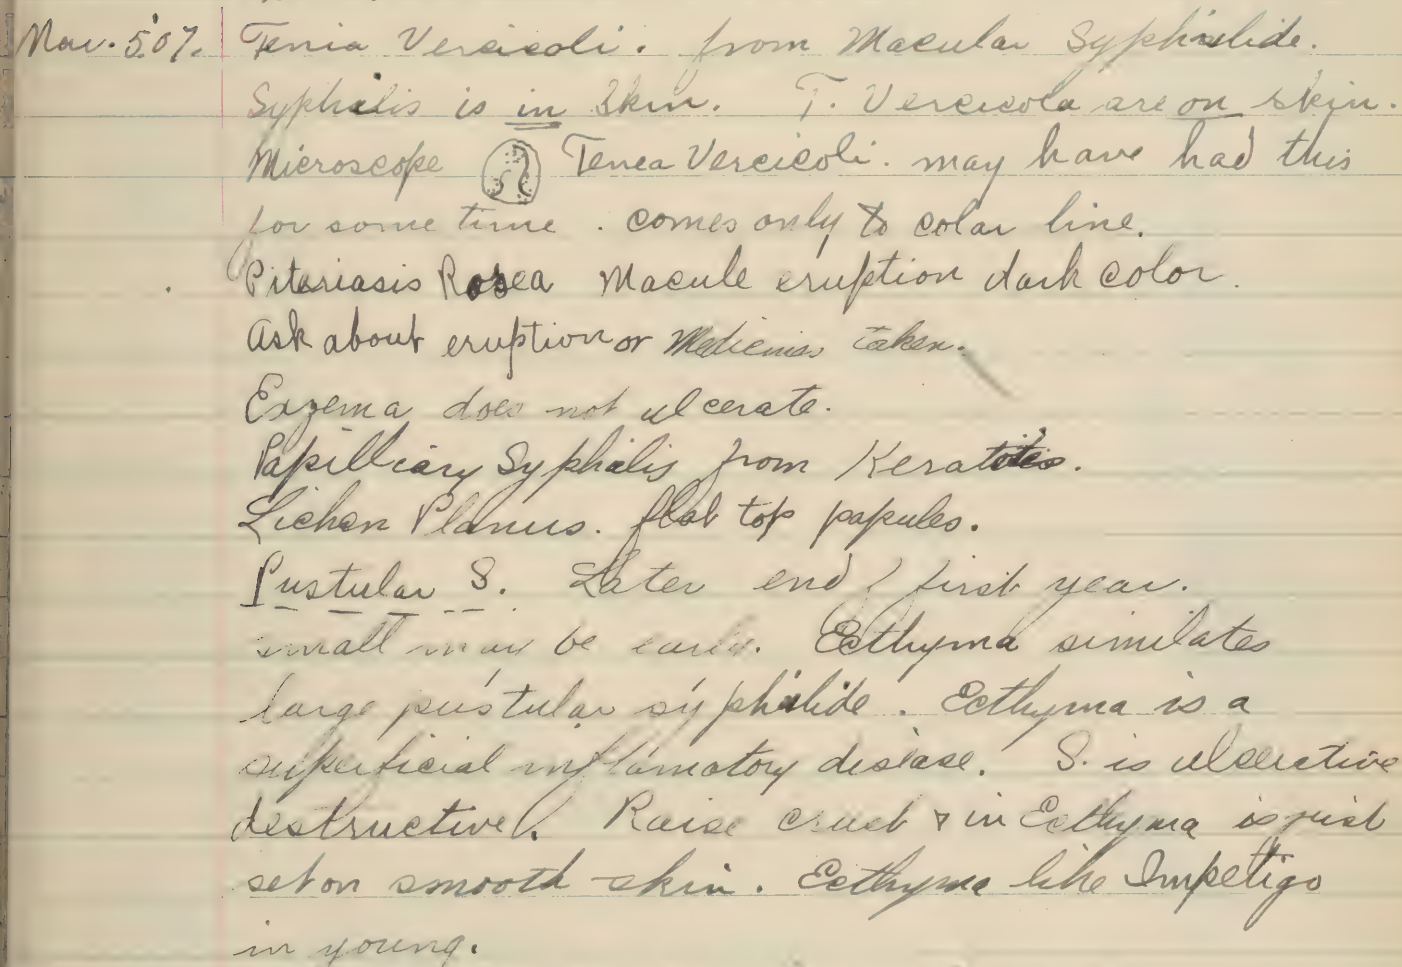 Mar. 5.07. Tenia Vercicoli. from Macular Syphilide.
Syphilis is in Skin. T. Vercicola are on skin.
Microscope Tenea Vercicoli. may have had this
for some time. comes only to colar line.
Pitariasis Rosea Macule eruption dark color.
Ask about eruption or Medicines taken.
Exzema does not ulcerate.
Papilliary Syphilis from Keratotis.
Lichen Planus. flat top papules.
Pustular S. Later end / first year.
small may be early. Ecthyma similates
large pustular syphilide. Ecthyma is a
superficial inflamatory disease. S. is ulcerative
destructive. Raise crust & in Ecthyma is just
set on smooth skin. Ecthyma like Impetigo
in young.